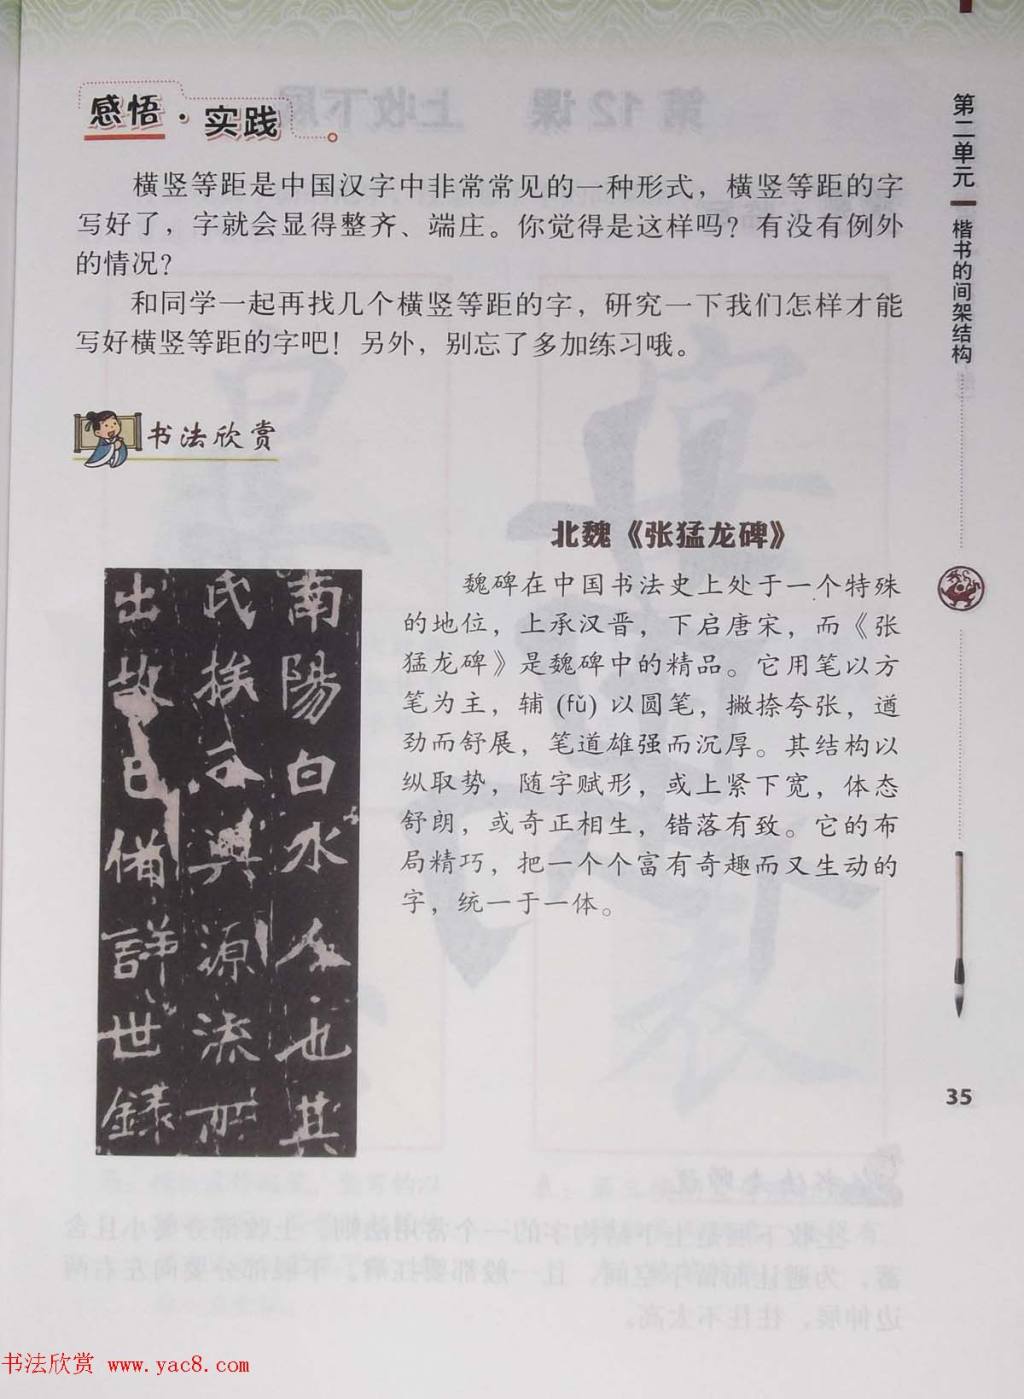 感悟·实践
横竖等距是中国汉字中非常常见的一种形式，横竖等距的字
写好了，字就会显得整齐、端庄。你觉得是这样吗？有没有例外
的情况？
和同学一起再找几个横竖等距的字，研究一下我们怎样才能
写好横竖等距的字吧！另外，别忘了多加练习哦。
书法欣赏
北魏《张猛龙碑》
魏碑在中国书法史上处于一个特殊
的地位，上承汉晋，下启唐宋，而《张
猛龙碑》是魏碑中的精品。它用笔以方
笔为主，辅 (fǔ) 以圆笔，撇捺夸张，遒
劲而舒展，笔道雄强而沉厚。其结构以
纵取势，随字赋形，或上紧下宽，体态
舒朗，或奇正相生，错落有致。它的布
局精巧，把一个个富有奇趣而又生动的
字，统一于一体。
南陽白水人也其
氏族分興源流所
出故已備詳世録
第二单元
楷书的间架结构
35
书法欣赏 www.yac8.com